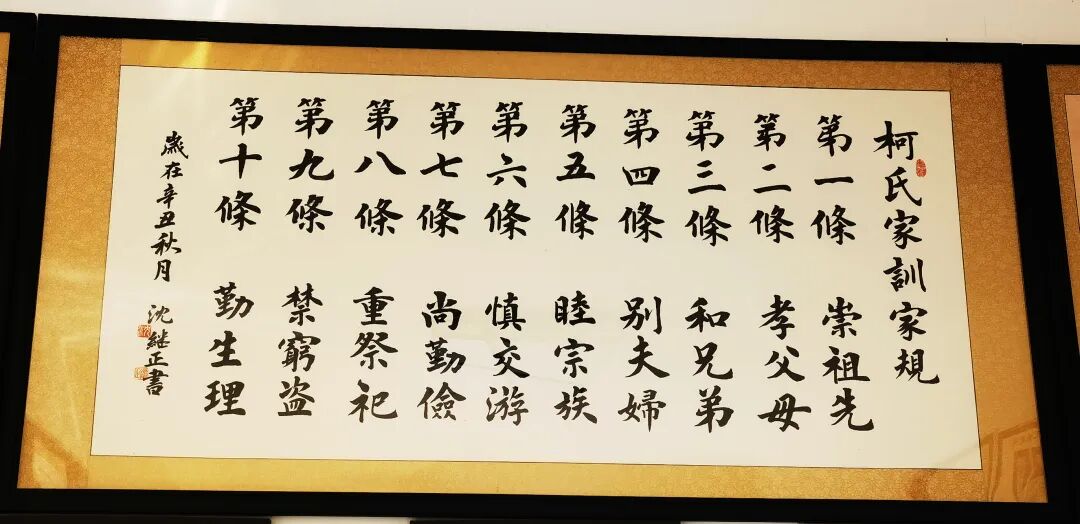 柯氏家訓家規
第一條 崇祖先
第二條 孝父母
第三條 和兄弟
第四條 别夫婦
第五條 睦宗族
第六條 慎交游
第七條 尚勤儉
第八條 重祭祀
第九條 禁窮盗
第十條 勤生理
歲在辛丑秋月 沈継正書